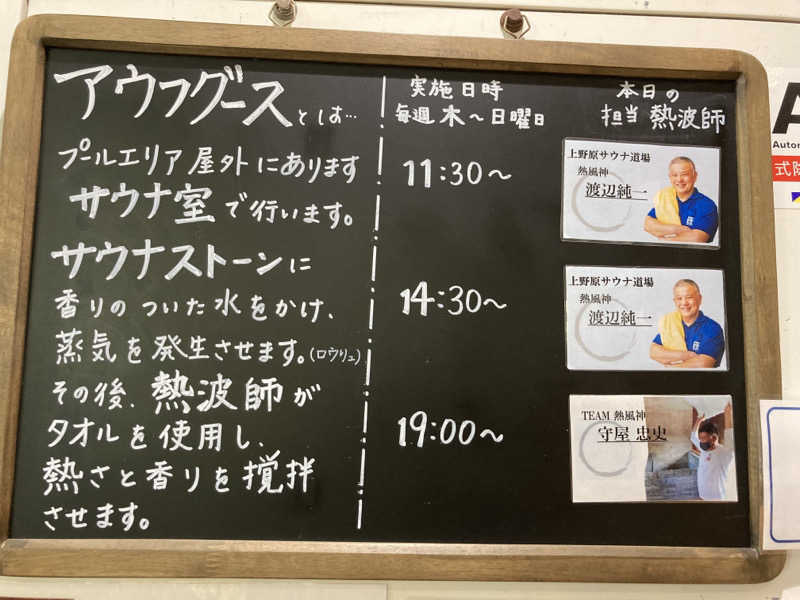 アウフグースとは…
プールエリア屋外にあります
サウナ室で行います。
サウナストーンに
香りのついた水をかけ、
蒸気を発生させます。(ロウリュ)
その後、熱波師が
タオルを使用し、
熱さと香りを撹拌
させます。
実施日時
毎週木～日曜日
11:30～
14:30～
19:00～
本日の
担当 熱波師
上野原サウナ道場
熱風神
渡辺純一
上野原サウナ道場
熱風神
渡辺純一
TEAM 熱風神
守屋 忠史